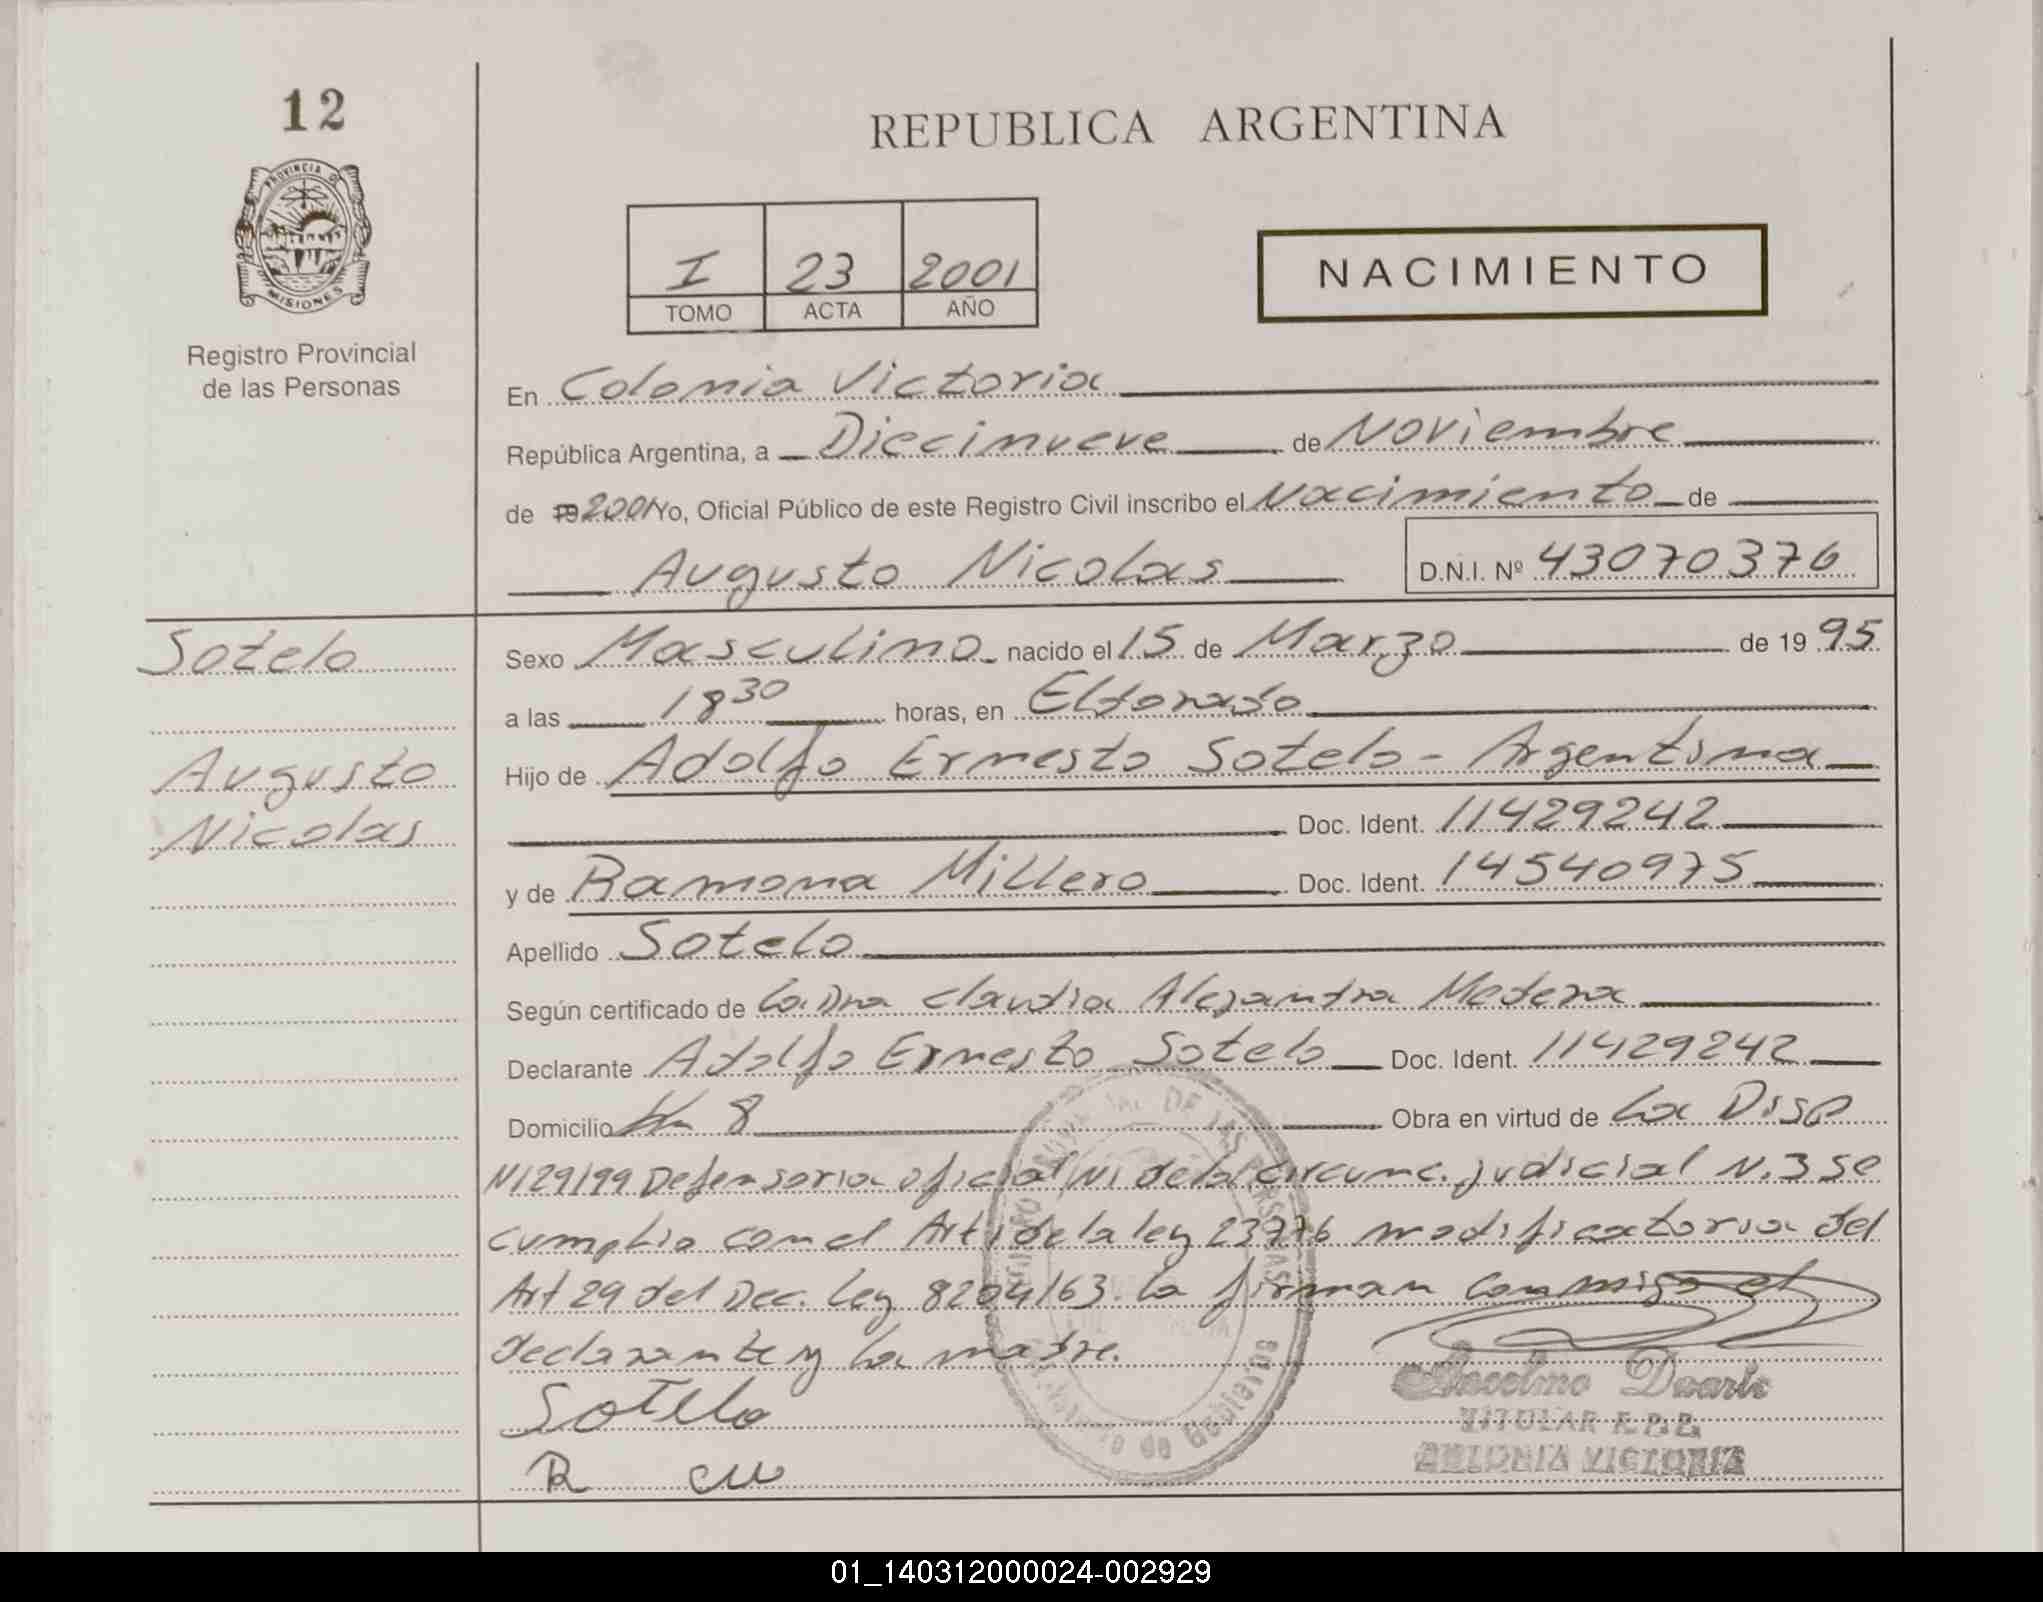 12
REPUBLICA ARGENTINA
PROVINCIA D
MISIONES
Registro Provincial
de las Personas
I 23 2001
TOMO ACTA AÑO
NACIMIENTO
En Colonia Victoria
República Argentina, a Diecinueve de Noviembre
de 19 2001 Yo, Oficial Público de este Registro Civil inscribo el Nacimiento de
Augusto Nicolas D.N.I. Nº 43070376
Sotelo
Augusto
Nicolas
Sexo Masculino nacido el 15 de Marzo de 19 95
a las 18 30 horas, en Eldorado
Hijo de Adolfo Ernesto Sotelo - Argentina
Doc. Ident. 11429242
y de Ramona Millero Doc. Ident. 14540975
Apellido Sotelo
Según certificado de La Dra Claudia Alejandra Medera
Declarante Adolfo Ernesto Sotelo Doc. Ident. 11429242
Domicilio Km 8 Obra en virtud de La Disp
N129/99 Defensoria oficial N1 de la circunc. judicial N.3 se
cumplio con el Art 1 de la ley 23776 modificatoria del
Art 29 del Dec. Ley 8204/63. La firman conmigo el
declarante y la madre.
Sotelo
R
DE LAS PERSONAS
TITULAR
COLONIA VICTORIA
01_140312000024-002929